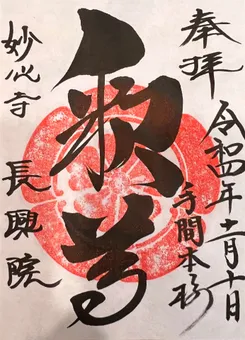 奉拝
令和四年十一月十日
手間本
釈尊
妙心寺 長興院